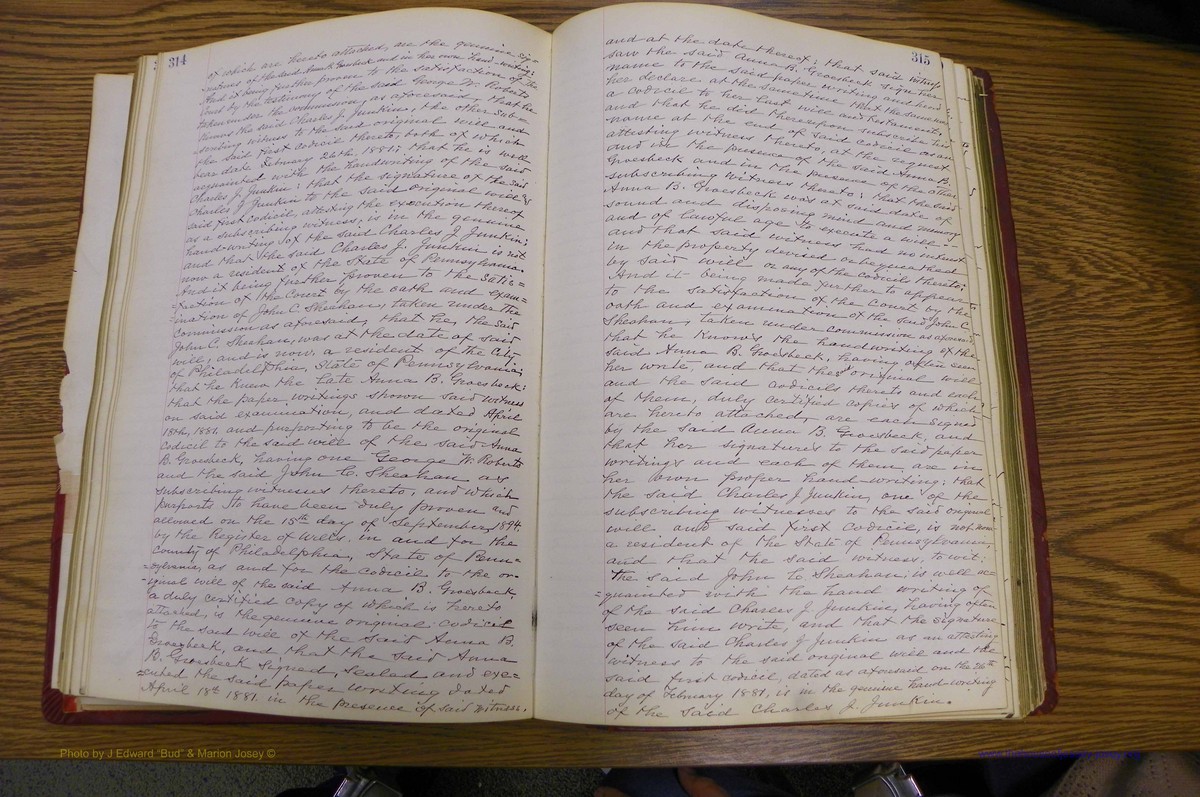 314
of which are hereto attached, are the genuine sig-
natures of the said Anna B. Groesbeck and in her own hand-writing;
And it being further proven to the satisfaction of the
Court by the testimony of the said George W. Roberts
taken under the commission, as aforesaid, that he
knows the said Charles J. Junkin, the other sub-
scribing witness to the said original will and
the said first codicil thereto, both of which
bear date February 26th, 1881; that he is well
acquainted with the handwriting of the said
Charles J. Junkin; that the signature of the said
Charles J. Junkin to the said original will &
said first codicil, attesting the execution thereof
as a subscribing witness, is in the genuine
hand-writing of the said Charles J. Junkin;
and that the said Charles J. Junkin is not
now a resident of the State of Pennsylvania.
And it being further proven to the satis=
faction of the Court by the oath and exam=
=ination of John C. Sheahan, taken under the
commission as aforesaid, that he, the said
John C. Sheahan, was at the date of said
will, and is now, a resident of the City
of Philadelphia, State of Pennsylvania;
that he knew the late Anna B. Groesbeck;
that the paper writings shown said witness
on said examination, and dated April
18th, 1881, and purporting to be the original
codicil to the said will of the said Anna
B. Groesbeck, having one George W. Roberts
and the said John C. Sheahan as
subscribing witnesses thereto, and which
purports to have been duly proven and
allowed on the 15th day of September, 1894
by the Register of Wills. in and for the
County of Philadelphia, State of Penn=
=sylvania, as and for the codicil to the or=
=iginal will of the said Anna B. Groesbeck,
a duly certified copy of which is hereto
attached, is the genuine original codicil
to the said will of the said Anna B.
Groesbeck, and that the said Anna
B. Groesbeck signed, sealed and exe=
=cuted the said paper writing dated
April 18th 1881. in the presence of said witness.
315
and at the date thereof; that said witness
saw the said Anna B. Groesbeck sign her
name to the said paper writing and heard
her declare at the same time that the same was
a codicil to her last will and testament;
and that he did thereupon subscribe his
name at the end of said codicil as an
attesting witness thereto, at the request
and in the presence of the said Anna B.
Groesbeck and in the presence of the other
subscribing witness thereto; that the said
Anna B. Groesbeck was at said date of
sound and disposing mind and memory
and of lawful age to execute a will:
and that said witness had no interest
in the property devised or bequeathed
by said will or any of the codicils thereto;
And it being made further to appear
to the satisfaction of the Court by the
oath and examination of the said John C.
Sheahan, taken under commission as aforesaid
that he knows the handwriting of the
said Anna B. Groesbeck, having often seen
her write, and that the original will
and the said codicils thereto and each
of them, duly certified copies of which
are hereto attached, are each signed
by the said Anna B. Groesbeck, and
that her signatures to the said paper
writings and each of them are in
her own proper hand-writing; that
the said Charles J. Junkin, one of the
subscribing witnesses to the said original
will and said first codicil, is not now
a resident of the State of Pennsylvania,
and that the said witness, to wit:
the said John C. Sheahan, is well ac=
=quainted with the hand writing of
of the said Charles J. Junkin, having often
seen him write, and that the signature
of the said Charles J. Junkin as an attesting
witness to the said original will and the
said first codicil, dated as aforesaid on the 26th
day of February 1881, is in the genuine hand-writing
of the said Charles J. Junkin.
Photo by J Edward "Bud" & Marion Josey ©